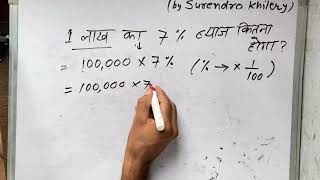 (by Surendra Khilery)
1 लाख का 7 % ब्याज कितना होगा ?
= 100,000 × 7 % (% → × 1/100)
= 100,000 × 7